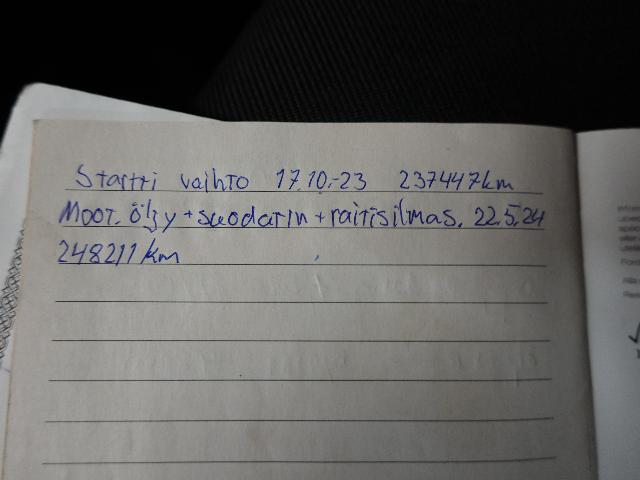 Startti vaihto 17.10.-23 237447km
Moot. öljy + suodatin + raitisilmas. 22.5.24
248211km